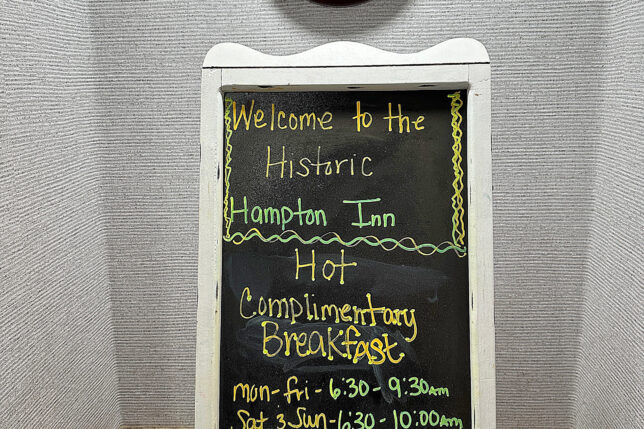 Welcome to the
Historic
Hampton Inn
Hot
Complimentary
Breakfast
mon-fri - 6:30 - 9:30am
Sat & Sun - 6:30 - 10:00am